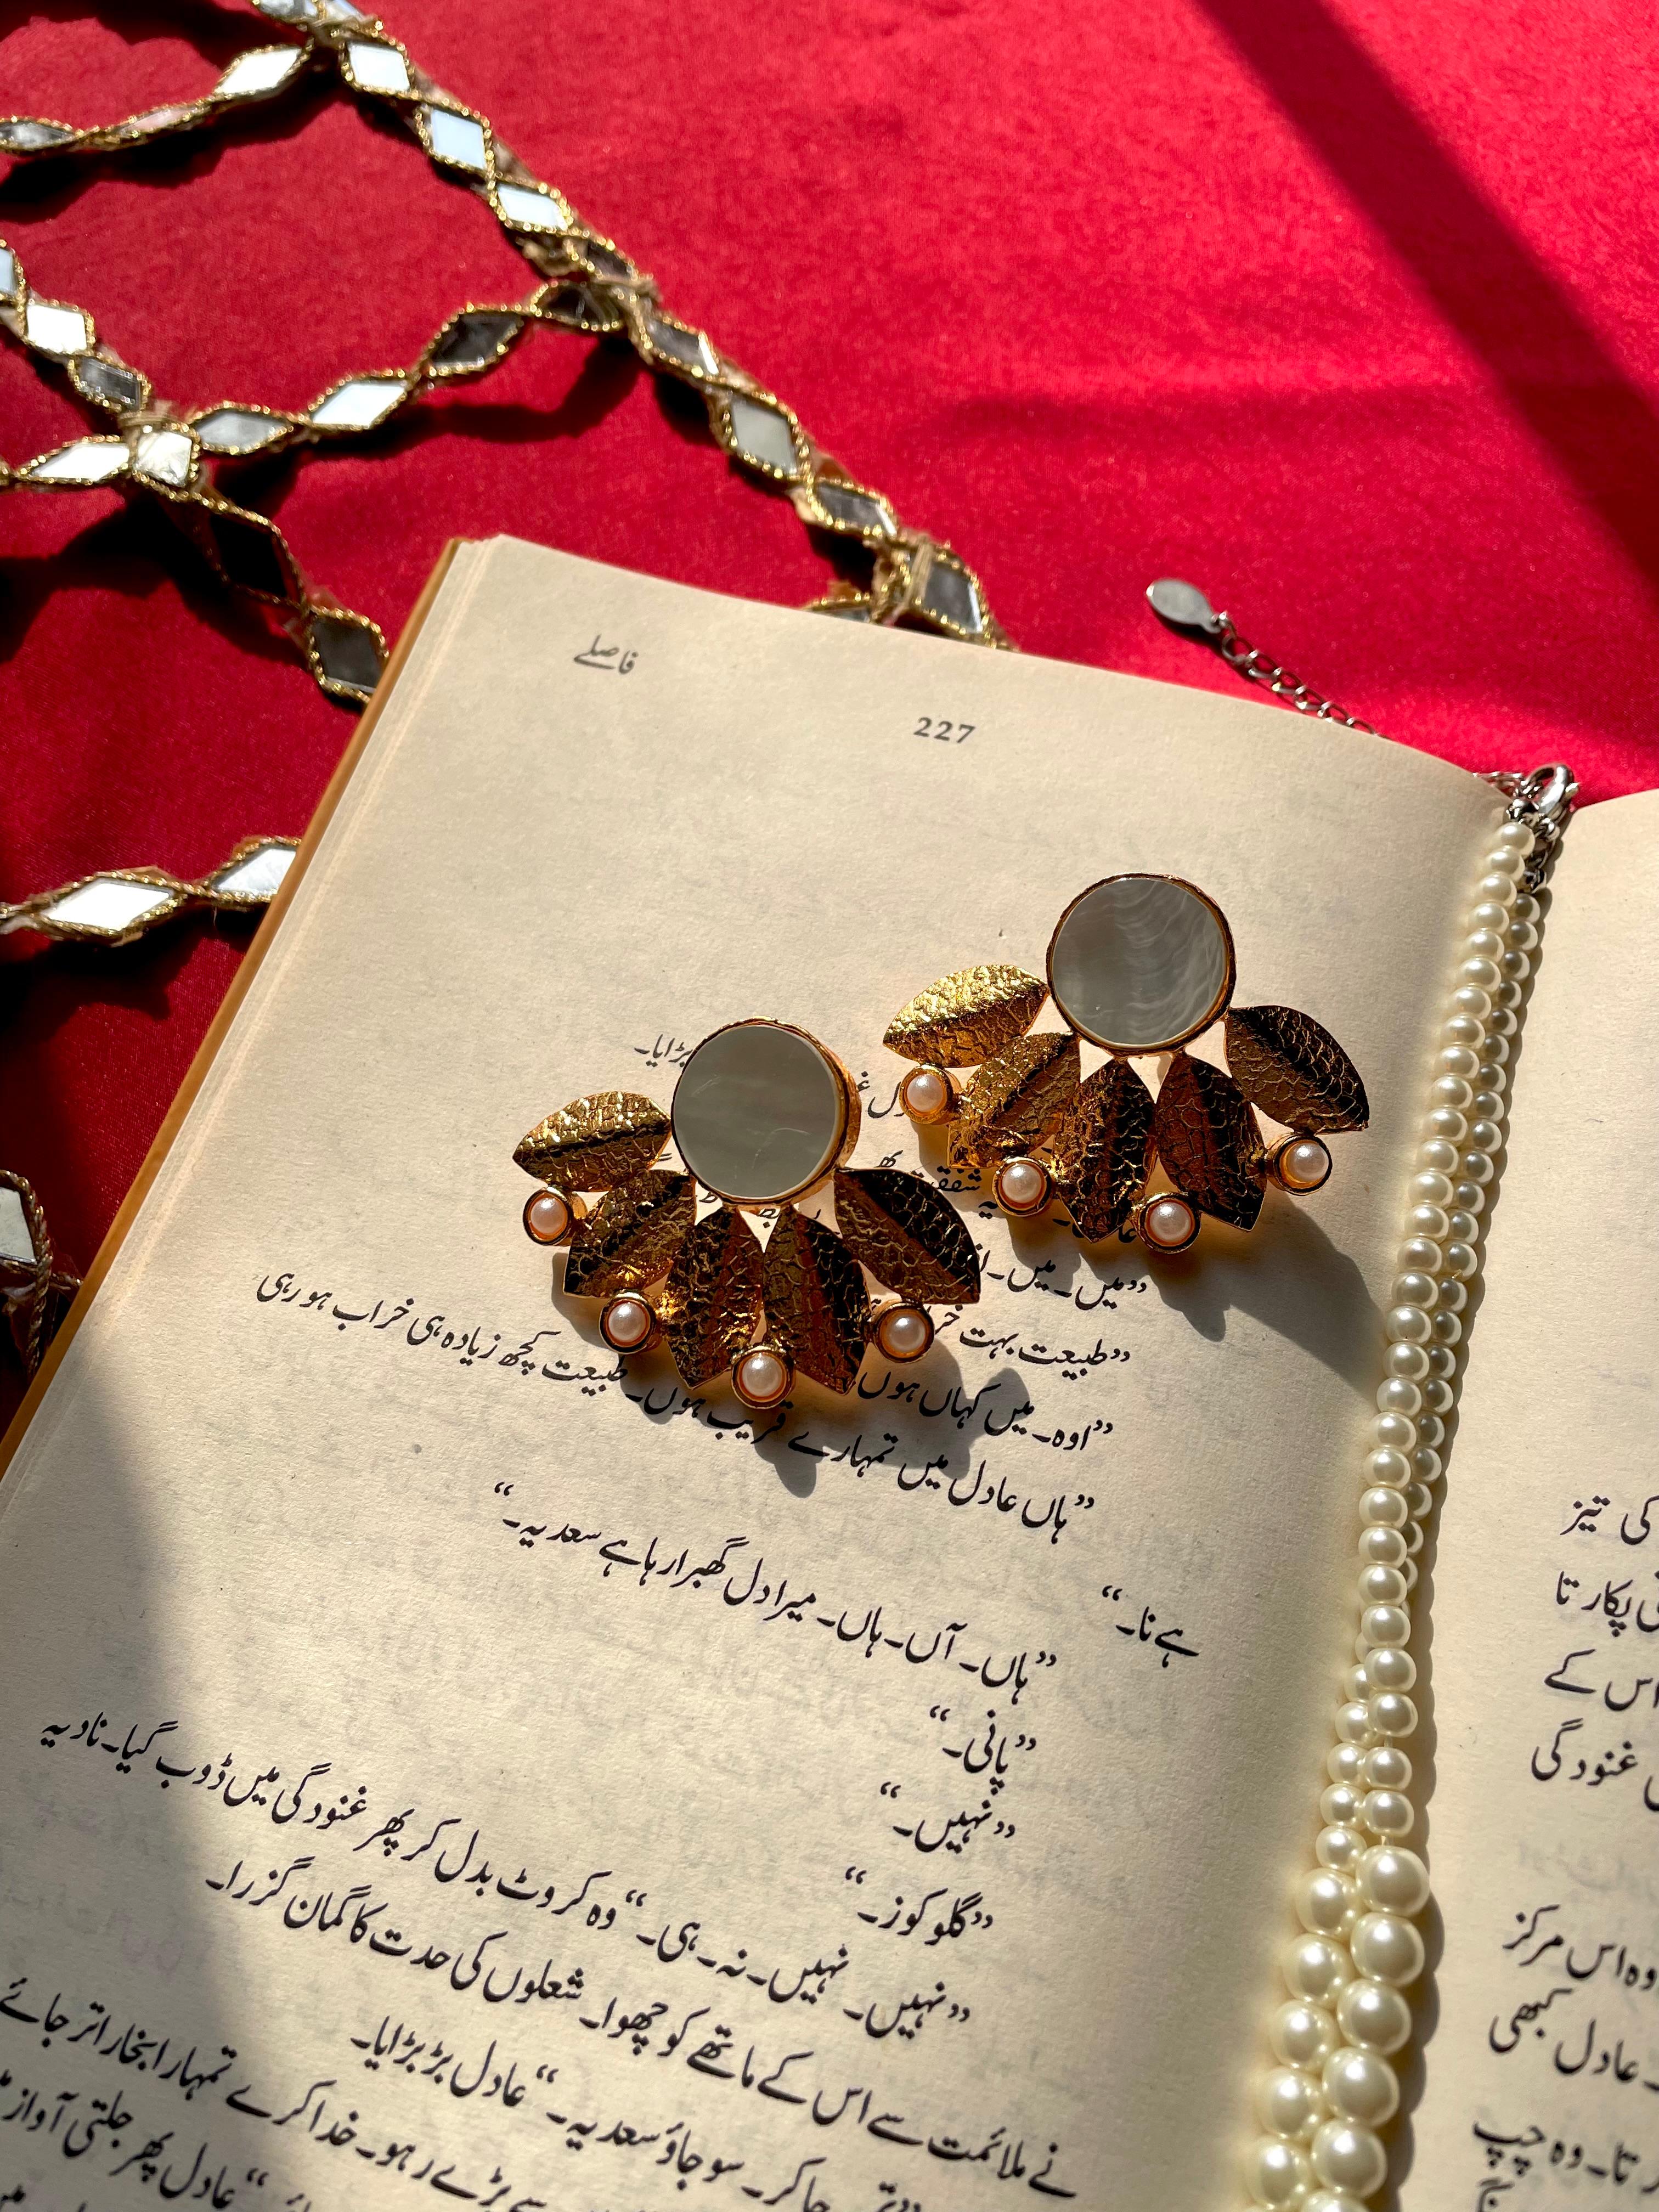 فاصلے
227
بڑایا۔
شفقت
”میں۔ میں۔
”طبیعت بہت
”اوہ۔ میں کہاں ہوں
”ہاں عادل میں تمہارے قریب ہوں۔ طبیعت کچھ زیادہ ہی خراب ہو رہی
ہے نا۔“
”ہاں۔ آں۔ ہاں۔ میرا دل گھبرا رہا ہے سعدیہ۔“
”پانی۔“
”نہیں۔“
”گلوکوز۔“
”نہیں۔ نہیں۔ نہ۔ ہی۔“ وہ کروٹ بدل کر پھر غنودگی میں ڈوب گیا۔ نادیہ
نے ملائمت سے اس کے ماتھے کو چھوا۔ شعلوں کی حدت کا گمان گزرا۔
جا کر۔ سو جاؤ سعدیہ۔“ عادل بڑبڑایا۔
پڑے رہو۔ خدا کرے تمہارا بخار اتر جائے
”عادل پھر جلتی آواز
کی تیز
پکارتا
اس کے
غنودگی
وہ اس مرکز
عادل کبھی
تا۔ وہ چپ